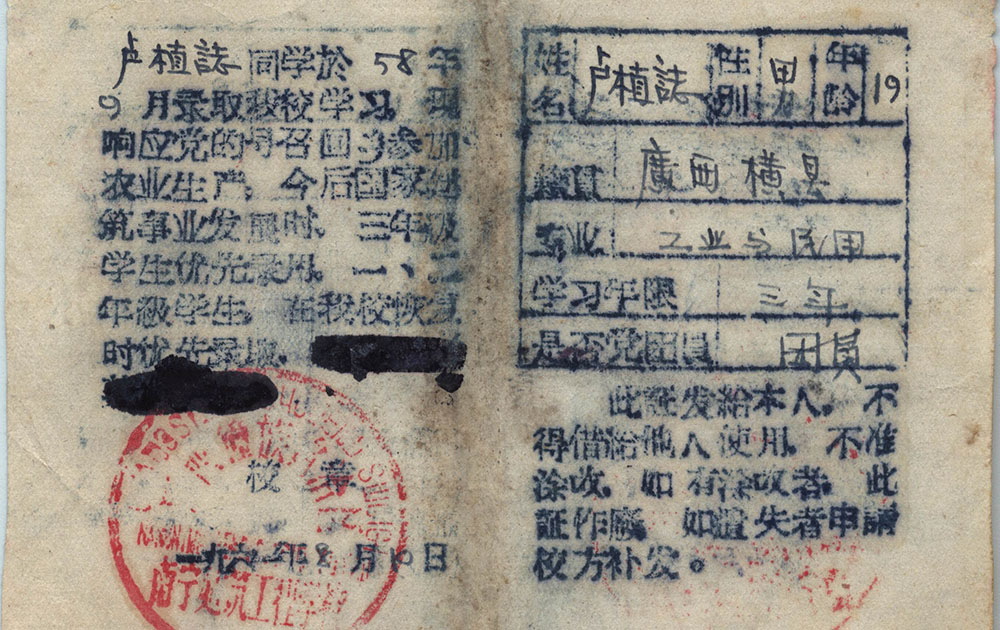 卢植誌同学於58年
9月录取我校学习,现
响应党的号召回乡参加
农业生产,今后国家建
筑事业发展时,三年级
学生优先录用。一、二
年級学生,在我校恢复
时优先录取.
校章
一九六二年8月10日
南宁建筑工程学校
姓名 卢植誌 性别 男 年龄 19
籍貫 廣西橫县
专业 工业与民用
学习年限 三年
是否党团員 团員
此証发給本人,不
得借給他人使用,不准
涂改,如有涂改者,此
証作廢,如遺失者申請
校方补发。